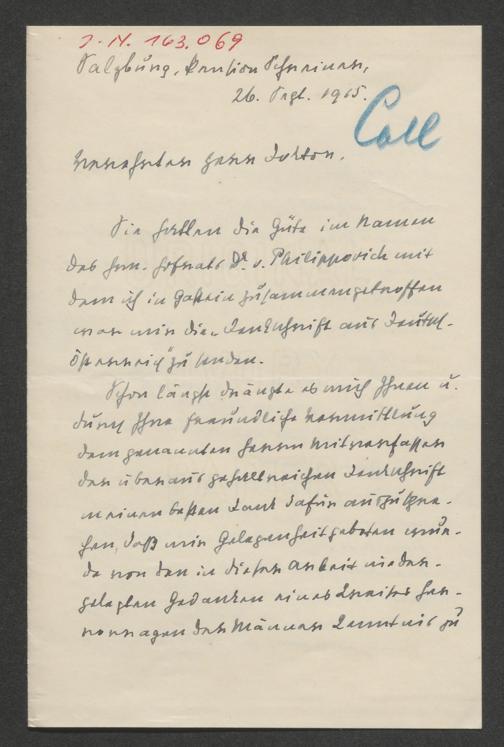 I. N. 163.069
Salzburg, Pension Schreiner,
26. Sept. 1915.
Call
Verehrter Herr Doktor.
Sie hatten die Güte im Namen
des Hrn. Hofrats Dr. v. Philippovich mit
dem ich in Gastein zusammengetroffen
war mir die „Denkschrift aus Deutsch-
österreich" zu senden.
Schon längst drängte es mich Ihnen u.
durch Ihre freundliche Vermittlung
dem genannten Herrn Mitverfasser
der überaus gehaltreichen Denkschrift
meinen besten Dank dafür auszuspre-
chen, daß mir Gelegenheit geboten wur-
de von den in dieser Arbeit nieder-
gelegten Gedanken eines Kreises her-
vorragender Männer Kenntnis zu